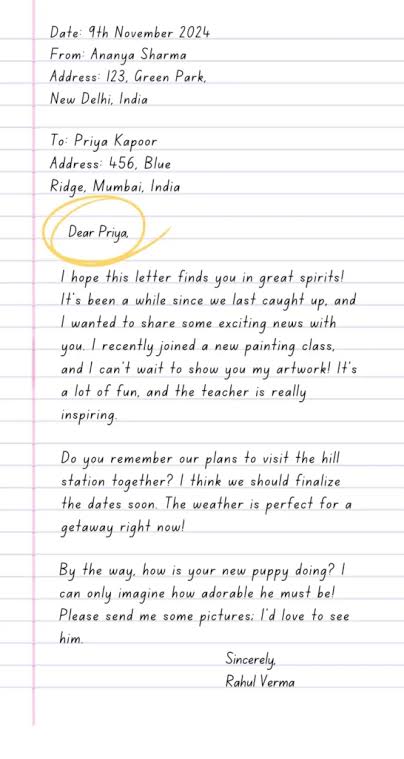 Date: 9th November 2024
From: Ananya Sharma
Address: 123, Green Park,
New Delhi, India
To: Priya Kapoor
Address: 456, Blue
Ridge, Mumbai, India
Dear Priya,
I hope this letter finds you in great spirits!
It's been a while since we last caught up, and
I wanted to share some exciting news with
you. I recently joined a new painting class,
and I can't wait to show you my artwork! It's
a lot of fun, and the teacher is really
inspiring.
Do you remember our plans to visit the hill
station together? I think we should finalize
the dates soon. The weather is perfect for a
getaway right now!
By the way, how is your new puppy doing? I
can only imagine how adorable he must be!
Please send me some pictures; I'd love to see
him.
Sincerely,
Rahul Verma